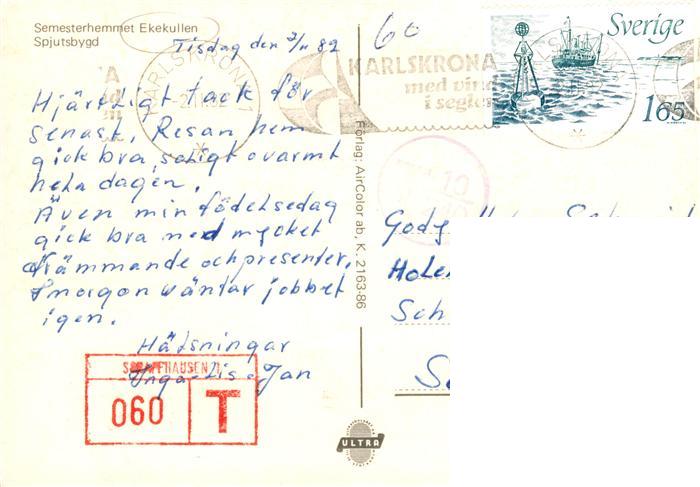 Semesterhemmet Ekekullen
Spjutsbygd
Tisdag den 2/11 82
60
Sverige
165
KARLSKRONA
KARLSKRONA
med vind
i segle
Hjärtligt tack för
senast. Resan hem
gick bra, soligt o varmt
hela dagen.
Även min födelsedag
gick bra med mycket
främmande och presenter.
I morgon väntar jobbet
igen.
Hälsningar
Inga-Lis o Jan
SCHAFFHAUSEN 1
060
T
Förlag: AirColor ab, K. 2163-86
Holen
Sch
ULTRA